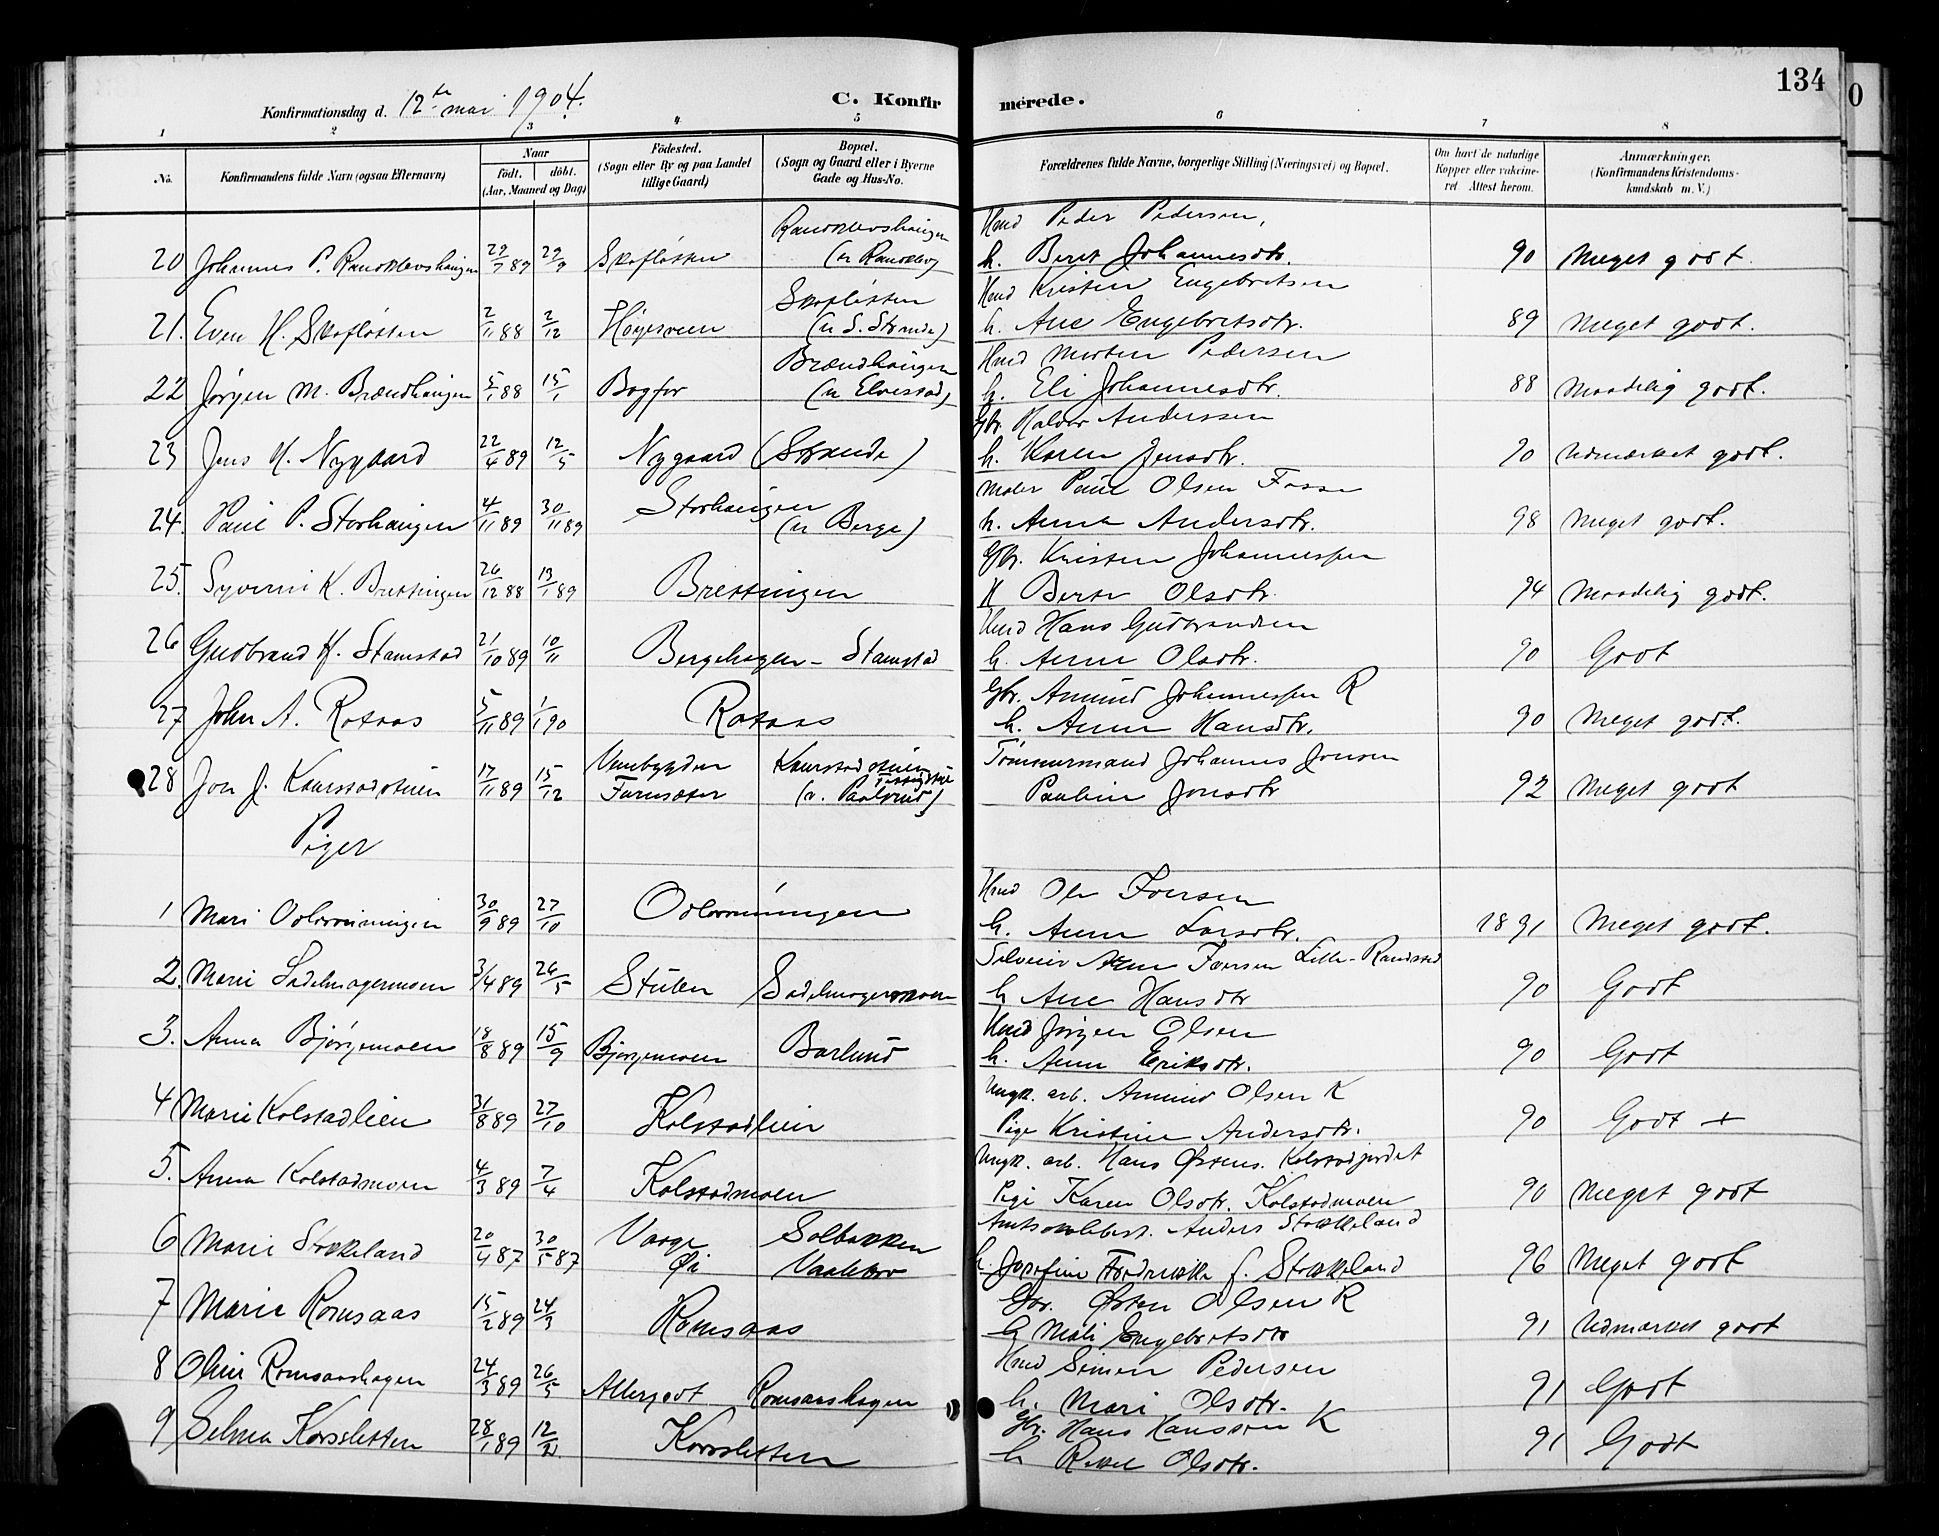 134
Konfirmationsdag d. 12te mai 1904.
C. Konfirmerede.
1 2 3 4 5 6 7 8
No. Konfirmandens fulde Navn (ogsaa Efternavn) Naar født. døbt. (Aar, Maaned og Dag) Fødested. (Sogn eller By og paa Landet tillige Gaard) Bopæl. (Sogn og Gaard eller i Byerne Gade og Hus-No. Forældrenes fulde Navne, borgerlige Stilling (Næringsvei) og Bopæl. Om havt de naturlige Kopper eller vakcineret Attest herom. Anmærkninger. (Konfirmandens Kristendomskundskab m. V.)
Hmd Peder Pedersen,
20 Johannes P. 29/7 89 29/9 Skofløtten h. Berit Johannesdtr. 90 Meget godt.
Skofløtten Hmd Kristen Engebretsen
21. Even H. Skofløtten 2/11 88 2/12 (u S. Strande) h. Ane Engebretsdtr. 89 Meget godt.
Brændhaugen Hmd Morten Pedersen
22 Jørgen M. Brændhaugen 5/1 88 15/1 (u Elvestad) h. Eli Johannesdtr. 88 Maadelig godt.
Gbr. Halvor Anderssen
23 Jens H. Nygaard 22/4 89 12/5 Nygaard (Strande) h. Karen Jensdtr. 90 Udmærket godt.
Storhaugen Maler Paul Olsen Fosse
24. Paul P. Storhaugen 4/11 89 30/11 89 (u Berge) h. Anna Andersdtr. 98 Meget godt.
Gbr. Kristen Johannessen
25. K. Brettingen 26/12 88 13/1 89 Brettingen H Berte Olsdtr. 94 Maadelig godt.
Hmd Hans Gudbrandsen
26 Gudbrand H. Stamstad 21/10 89 10/11 Bergehagen - Stamstad h. Anne Olsdtr. 90 Godt
Gbr. Amund Johannessen R
27 John A. Rotaas 5/11 89 1/1 90 Rotaas h. Anne Hansdtr. 90 Meget godt.
Venebygden Kaurstadstuen Tømmermand Johannes Jonsen
28 Jon J. Kaurstadstuen 17/11 89 15/12 Pauline Jonsdtr 92 Meget godt
Piger
Hmd Ole Iversen
1 Mari 30/9 89 27/10 h. Anne Larsdtr. 1891 Meget godt.
Iversen Lille-Randstad
2. Marie Sadelmagermoen 3/4 89 26/5 Stulen Sadelmagermoen h Ane Hansdtr 90 Godt
Hmd Jørgen Olsen
3. Anna Bjørgemoen 18/8 89 15/9 Bjørgemoen Barlund h. Anne Eriksdtr. 90 Godt
Ungk. arb. Amund Olsen K
4 Marie Kolstadlien 31/8 89 27/10 Kolstadlien Pige Kristine Andersdtr. 90 Godt +
Ungk. arb. Hans Østens. Kolstadjordet
5. Anna Kolstadmoen 4/3 89 7/4 Kolstadmoen Pige Karen Olsdtr. Kolstadmoen 90 Meget godt
Vaage Solbakken Anders Stokkeland
6 Marie Stokkeland 20/4 87 30/5 87 Øi Vaalebro h. Josefine Fredrikke f. Stokkeland 96 Meget godt
Gbr. Østen Olsen R
7 Marie Romsaas 15/2 89 24/3 Romsaas h Mali Engebretsdtr 91 Udmærket godt
Hmd Simen Pedersen
8 Oline Romsaashagen 24/3 89 26/5 Romsaashagen h. Mari Olsdtr. 91 Godt
Gbr. Hans Hanssen K
9 Selma Korsletten 28/1 89 12/2 Korsletten h Olsdtr. 91 Godt